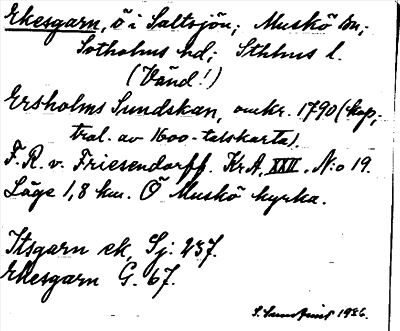 Ekesgarn, ö i Saltsjön; Muskö sn;
Sotholms hd; Sthlms l.
(Vänd!)
Ersholms Sundskan, omkr. 1790 (kop;
tral. av 1600-talskarta).
F. R. v. Friesendorff. KrA, XXII. N:o 19.
Läge 1,8 km. Ö Muskö kyrka.
Itsgarn ek, Sj: 237.
Ekesgarn G. 67.
S. Sundqvist 1936.